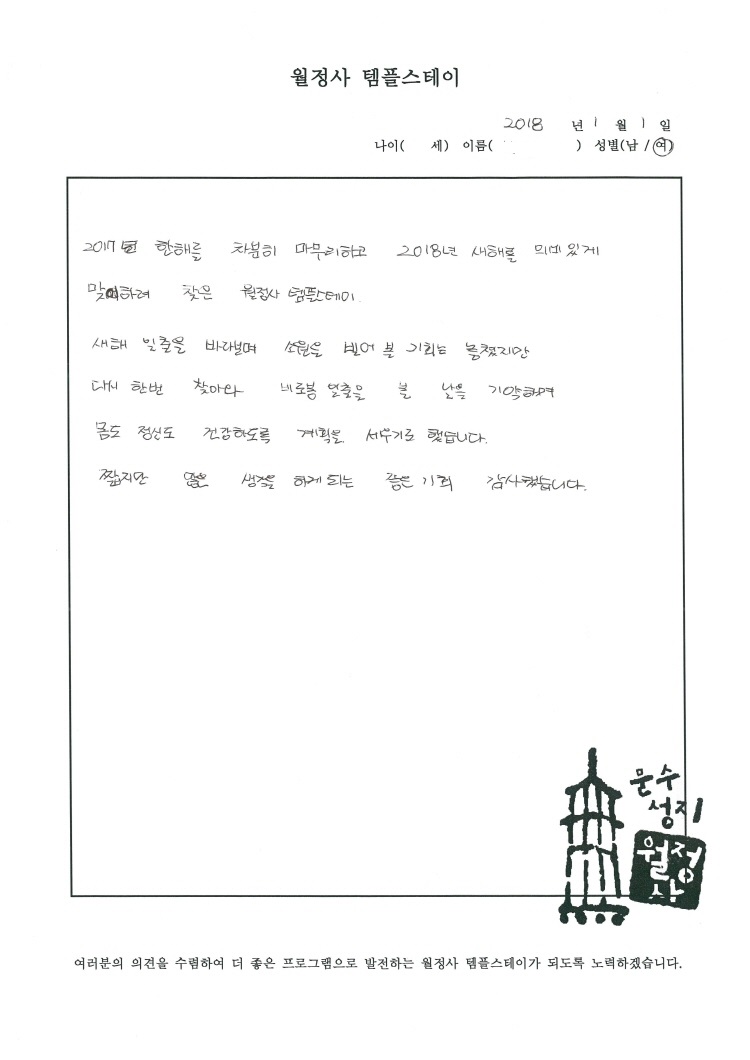 월정사 템플스테이
2018 년 1 월 1 일
나이( 세) 이름( ) 성별(남 / 여)
2017년 한해를 차분히 마무리하고 2018년 새해를 의미있게
맞이하려 찾은 월정사 템플스테이.
새해 일출을 바라보며 소원을 빌어 볼 기회는 놓쳤지만
다시 한번 찾아와 비로봉 일출을 볼 날을 기약하며
몸도 정신도 건강하도록 계획을 세우기로 했습니다.
짧지만 많은 생각을 하게 되는 좋은 기회 감사했습니다.
문수
성지
월정
사
여러분의 의견을 수렴하여 더 좋은 프로그램으로 발전하는 월정사 템플스테이가 되도록 노력하겠습니다.